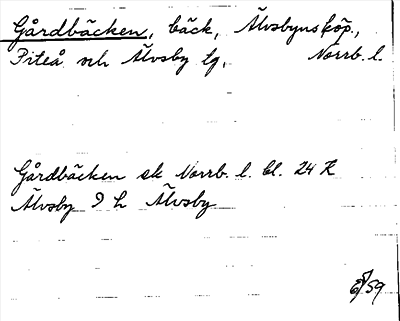 Gårdbäcken, bäck, Älvsbyns köp.,
Piteå och Älvsby tg, Norrb. l.
Gårdbäcken sk Norrb. l. bl. 24 K
Älvsby 9 h Älvsby